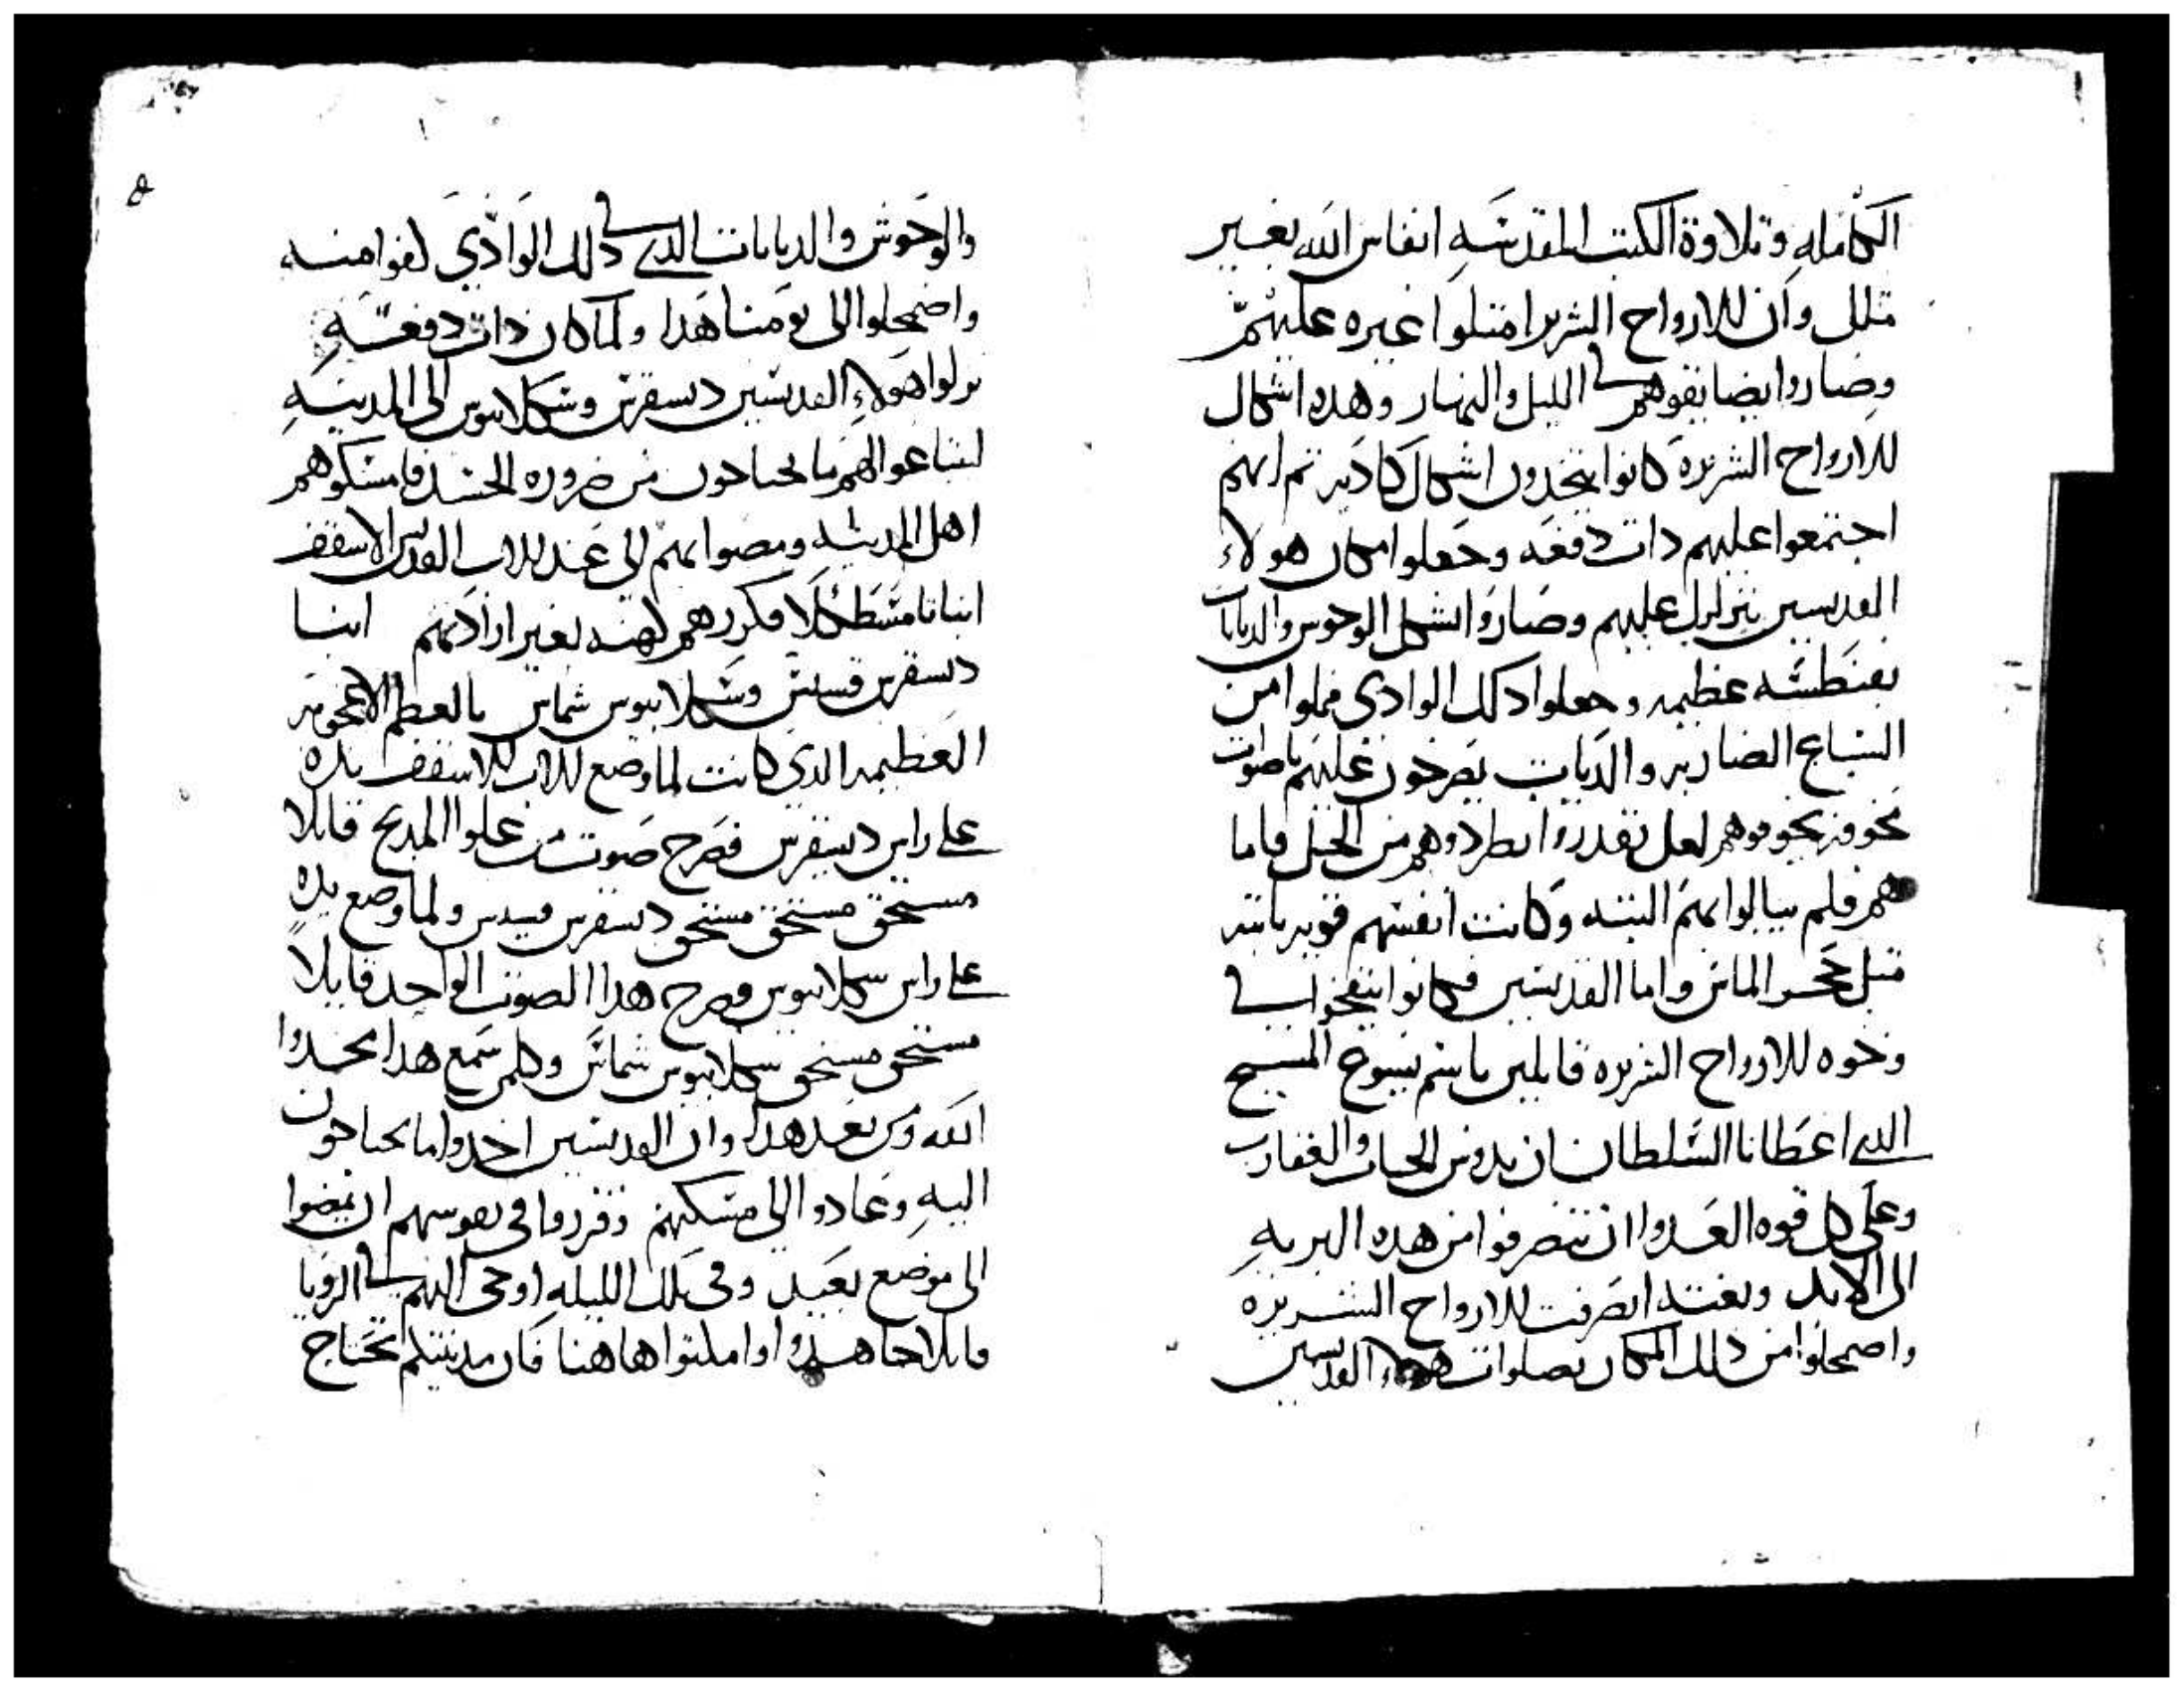 الكامله وتلاوة الكتب المقدسه انفاس الله بغير
ملل وان للارواح الشريرا امتلوا غيره عليهم
وصاروا ايضا يقوهم في الليل والنهار وهده اشكال
للارواح الشريره كانوا يتخدون اشكال كادبه تم انهم
اجتمعوا عليهم دات دفعه وجعلوا مكان هولاء
القديسين يتزلزل عليهم وصاروا بشكل الوحوش والدبابات
بفنطسه عظيمه وجعلوا دلك الوادي مملوا من
السباع الضاريه والدبابت يصرخون عليهم باصوات
مخوفه يخوفوهم لعل يقدروا يطردوهم من الجبل فاما
هم فلم يبالوا بهم البته وكانت انفسهم قويه تابته
متل حجر الماس واما القديسين فكانوا ينفخوا في
وجوه للارواح الشريره قايلين باسم يسوع المسيح
الدي اعطانا السلطان ان ندوس الحيات والعقارب
وعلى كل قوه العدوا ان تنصرفوا من هده البريه
الى الابد وبغته انصرفت للارواح الشريره
واضمحلوا من دلك المكان بصلوات هولاء القديسين
والوحوش والدبابات الدي في دلك الوادي
واضمحلوا الى يومنا هدا ولما كان دات دفعه
نزلوا هولاء القديسين ديسقرس وسكلابيوس الى المدينه
ليبتاعوا لهم ما يحتاجون من ضروره الجسد فامسكوهم
اهل المدينه ومضوا بهم الي عند للاب القديس الاسقف
انبا فكرزهم كهنه بغير ارادتهم انبا
ديسقرس قسيس وسكلابيوس شماس يالعظم الاعجوبه
العظيمه الدي كانت لما وضع للاب للاسقف يده
على راس ديسقرس فصرخ صوت من علوا المدبح قايلا
مستحق مستحق مستحق ديسقرس قسيس ولما وضع يده
على راس سكلابيوس صرخ هدا الصوت الواحد قايلا
مستحق مستحق سكلابيوس شماس وكلمن سمع هدا مجدوا
الله ومن بعد هدا وان القديسين اخدوا ما يحتاجون
اليه وعادوا الى مسكنهم وقرروا في نفوسهم ان يمضوا
الى موضع بعيد وفي تلك الليله اوحى اليهم في الرويا
قايلا جاهدوا وامكتوا هاهنا فان مدينتكم تحتاج